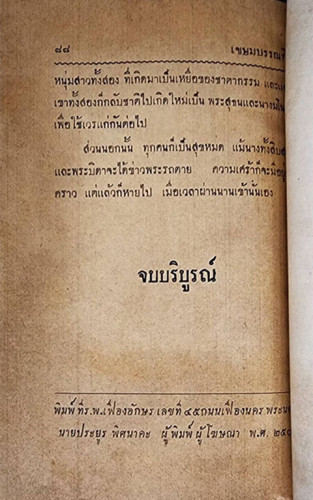 ๘๘ เขษมบรรณกิ
หนุ่มสาวทั้งสอง ที่เกิดมาเป็นเหยื่อของชาตากรรม และแ
เขาทั้งสองก็กลับชาติไปเกิดใหม่เป็น พระสุธนและนางมโน
เพื่อใช้เวรแก่กันต่อไป
ส่วนนอกนั้น ทุกคนก็เป็นสุขหมด แม้นางทั้งสิบส
และพระบิดาจะได้ข่าวพระรถตาย ความเศร้าก็จะมีอยู่
คราว แต่แล้วก็หายไป เมื่อเวลาผ่านนานเข้านั้นเอง
จบบริบูรณ์
พิมพ์ ที่ร.พ.เฟื่องอักษร เลขที่ ๔๕ถนนเฟื่องนคร พระน
นายประยูร พิศนาคะ ผู้พิมพ์ ผู้โฆษณา พ.ศ. ๒๕๐